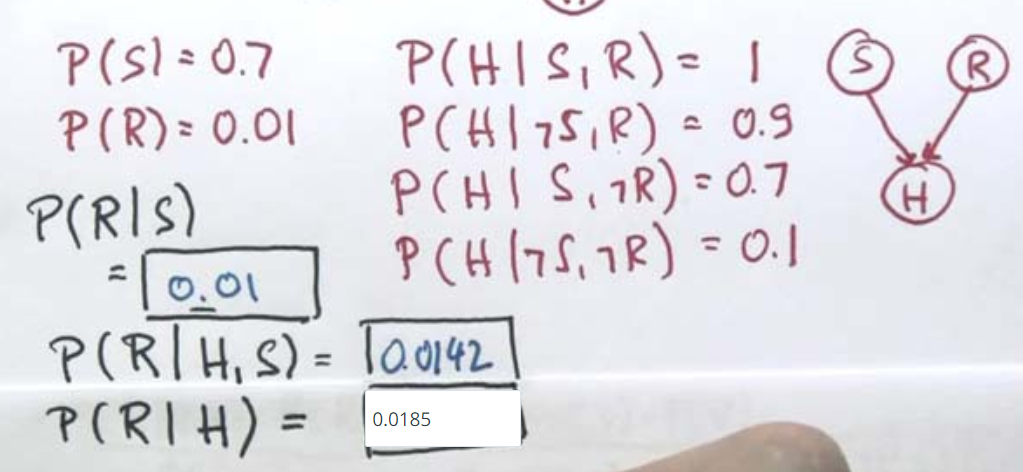 P(S) = 0.7
P(R) = 0.01
P(H | S, R) = 1
P(H | ¬S, R) = 0.9
P(H | S, ¬R) = 0.7
P(H | ¬S, ¬R) = 0.1
S
R
H
P(R | S)
= 0.01
P(R | H, S) = 0.0142
P(R | H) = 0.0185